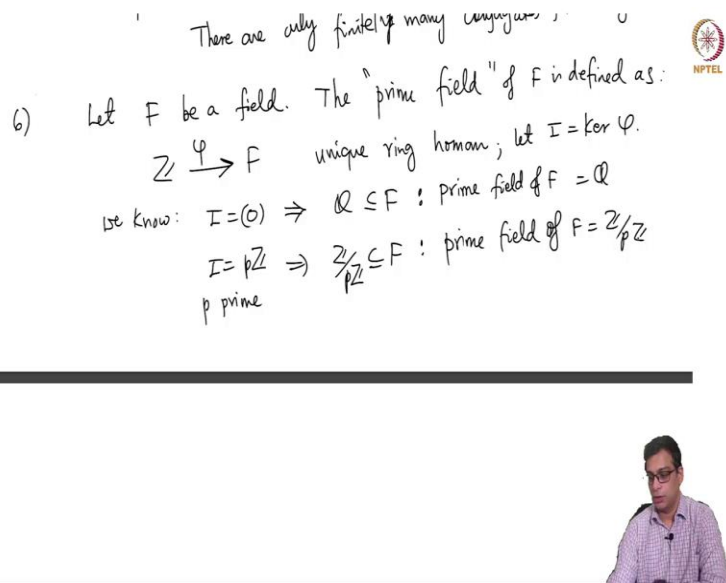 There are only finitely many conjugates,
NPTEL
6) Let F be a field. The "prime field" of F is defined as:
ℤ —φ→ F unique ring homom; let I = ker φ.
we know: I=(0) ⇒ ℚ ⊆ F : prime field of F = ℚ
I = pℤ ⇒ ℤ/pℤ ⊆ F : prime field of F = ℤ/pℤ
p prime